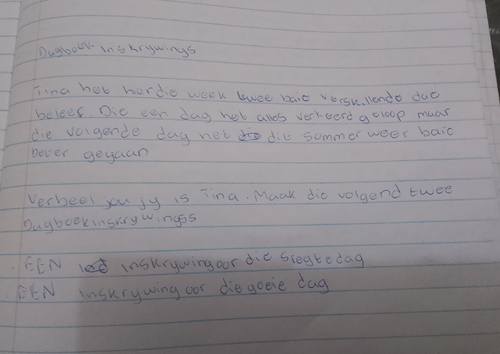 Dagboek inskrywings
Tina het hierdie week twee baie verskillende dae
beleef. Die een dag het alles verkeerd geloop maar
die volgende dag het die sommer weer baie
beter gegaan
Verbeel jou jy is Tina. Maak die volgend twee
Dagboekinskrywingss
. EEN inskrywing oor die slegte dag
. EEN inskrywing oor die goeie dag